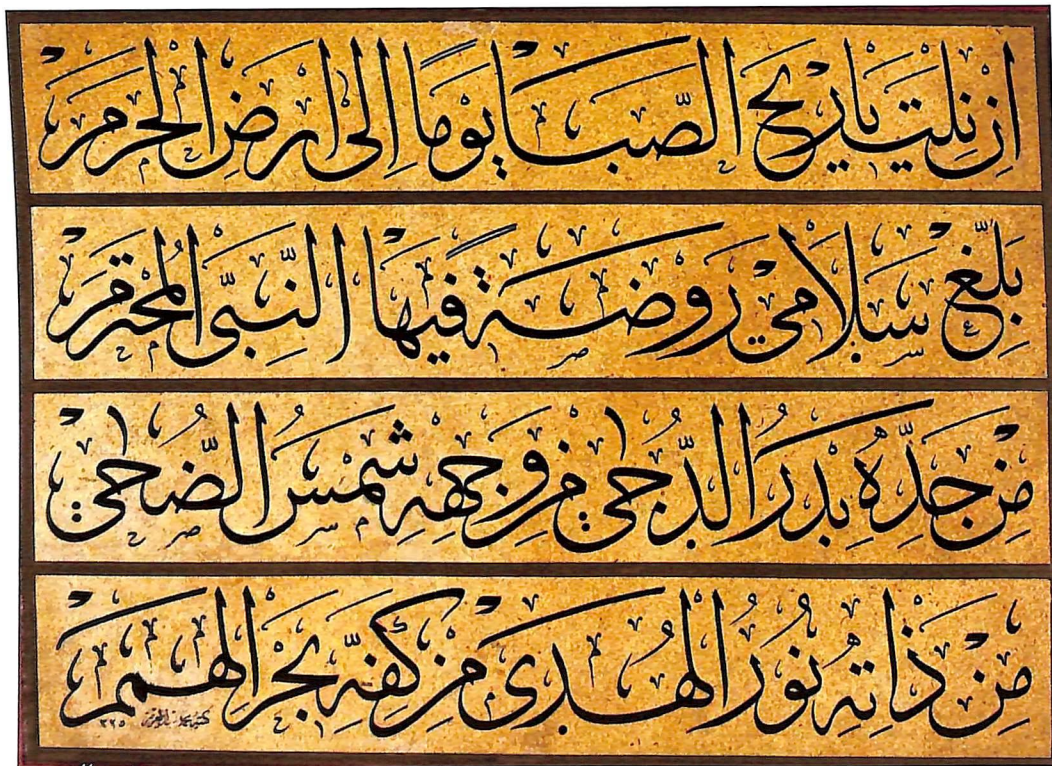 ان نلت يا ريح الصبا يومًا إلى ارض الحرم
بلّغ سلامي روضةً فيها النّبيّ المحترم
من خدّه بدر الدّجى من وجهه شمس الضّحى
من ذاته نور الهدى من كفّه بحر الهمم